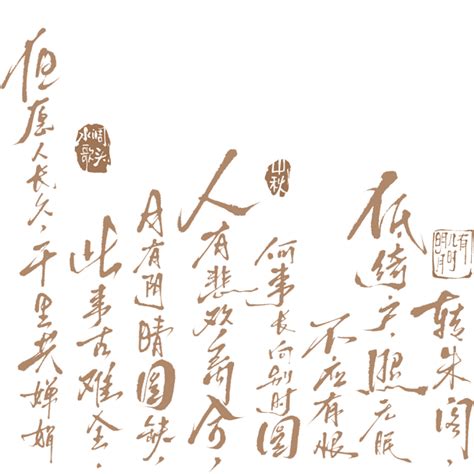 明月几时有
转朱阁，
低绮户，照无眠
不应有恨
何事长向别时圆
中秋
人有悲欢离合，
月有阴晴圆缺，
此事古难全，
水调歌头
但愿人长久，千里共婵娟